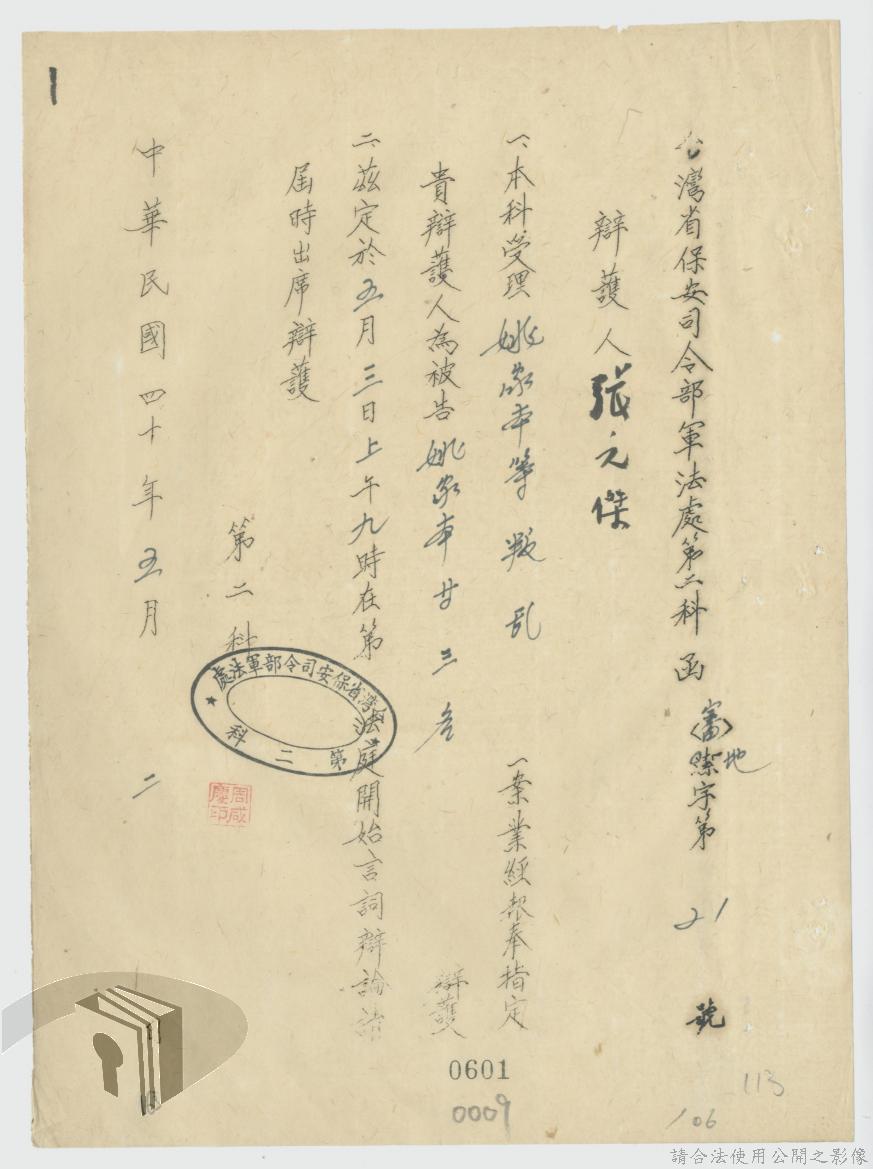 台灣省保安司令部軍法處第二科函 (審)地字第 21 號
辯護人 張元傑
一、本科受理 姚家本等 叛乱 一案業經報奉指定
貴辯護人為被告 姚家本 廿三名 辯護
二、茲定於五月三日上午九時在第 法庭開始言詞辯論請
屆時出席辯護
第二科
臺灣省保安司令部軍法處
第二科
周咸慶印
中華民國四十年五月 二
0601
0009
113
106
請合法使用公開之影像